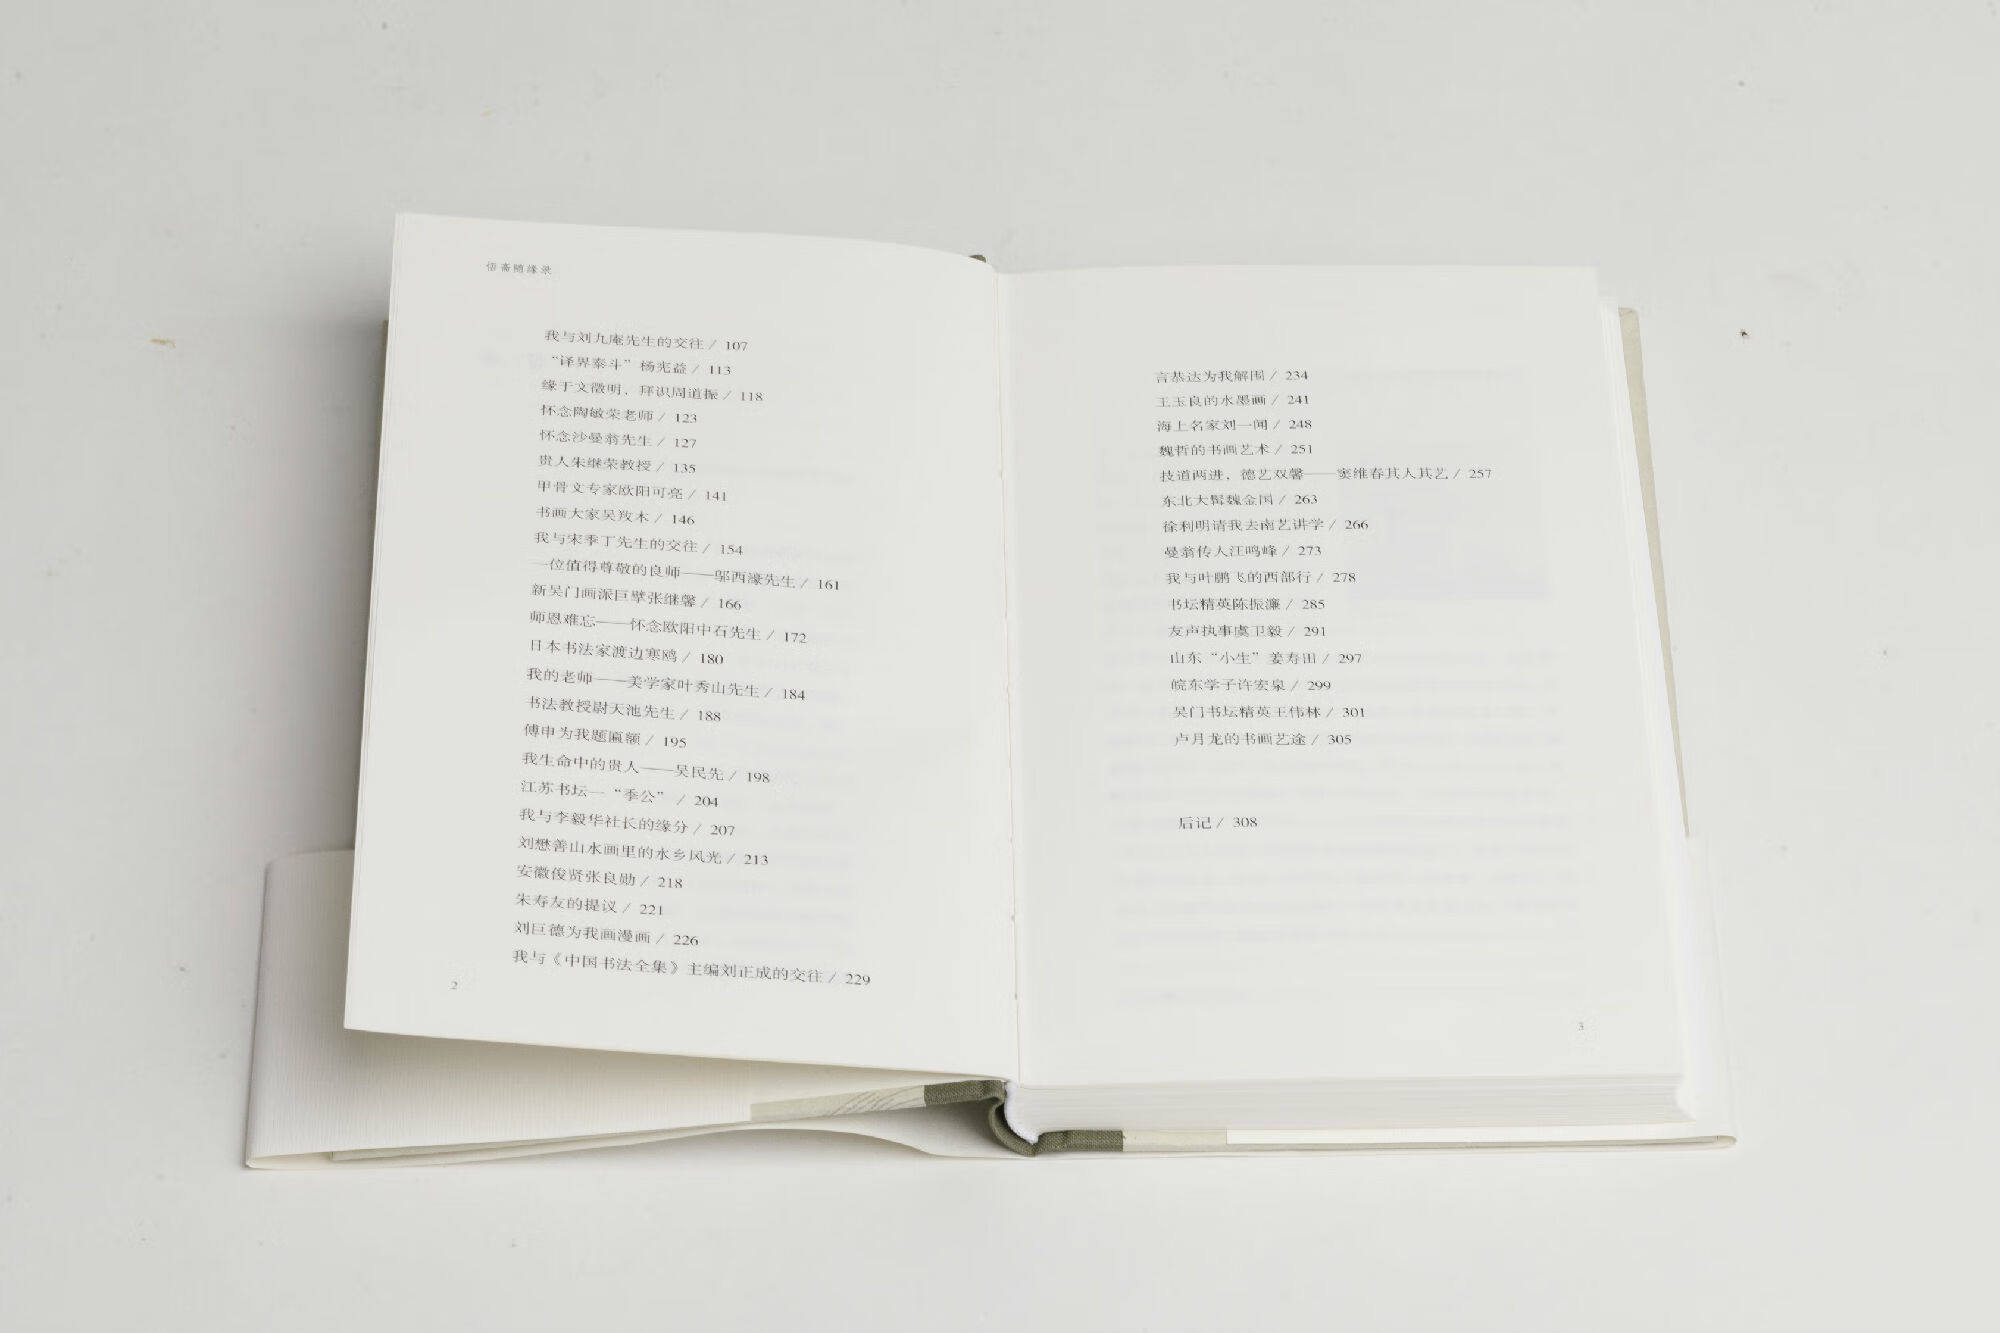 悟斋随缘录
我与刘九庵先生的交往 / 107
“译界泰斗”杨宪益 / 113
缘于文徵明，拜识周道振 / 118
怀念陶敏荣老师 / 123
怀念沙曼翁先生 / 127
贵人朱继荣教授 / 135
甲骨文专家欧阳可亮 / 141
书画大家吴敔木 / 146
我与宋季丁先生的交往 / 154
一位值得尊敬的良师——邬西濠先生 / 161
新吴门画派巨擘张继馨 / 166
师恩难忘——怀念欧阳中石先生 / 172
日本书法家渡边寒鸥 / 180
我的老师——美学家叶秀山先生 / 184
书法教授尉天池先生 / 188
傅申为我题匾额 / 195
我生命中的贵人——吴民先 / 198
江苏书坛一“季公” / 204
我与李毅华社长的缘分 / 207
刘懋善山水画里的水乡风光 / 213
安徽俊贤张良勋 / 218
朱寿友的提议 / 221
刘巨德为我画漫画 / 226
我与《中国书法全集》主编刘正成的交往 / 229
2
言恭达为我解围 / 234
王玉良的水墨画 / 241
海上名家刘一闻 / 248
魏哲的书画艺术 / 251
技道两进，德艺双馨——窦维春其人其艺 / 257
东北大髯魏金国 / 263
徐利明请我去南艺讲学 / 266
曼翁传人汪鸣峰 / 273
我与叶鹏飞的西部行 / 278
书坛精英陈振濂 / 285
友声执事虞卫毅 / 291
山东“小生”姜寿田 / 297
皖东学子许宏泉 / 299
吴门书坛精英王伟林 / 301
卢月龙的书画艺途 / 305
后记 / 308
3